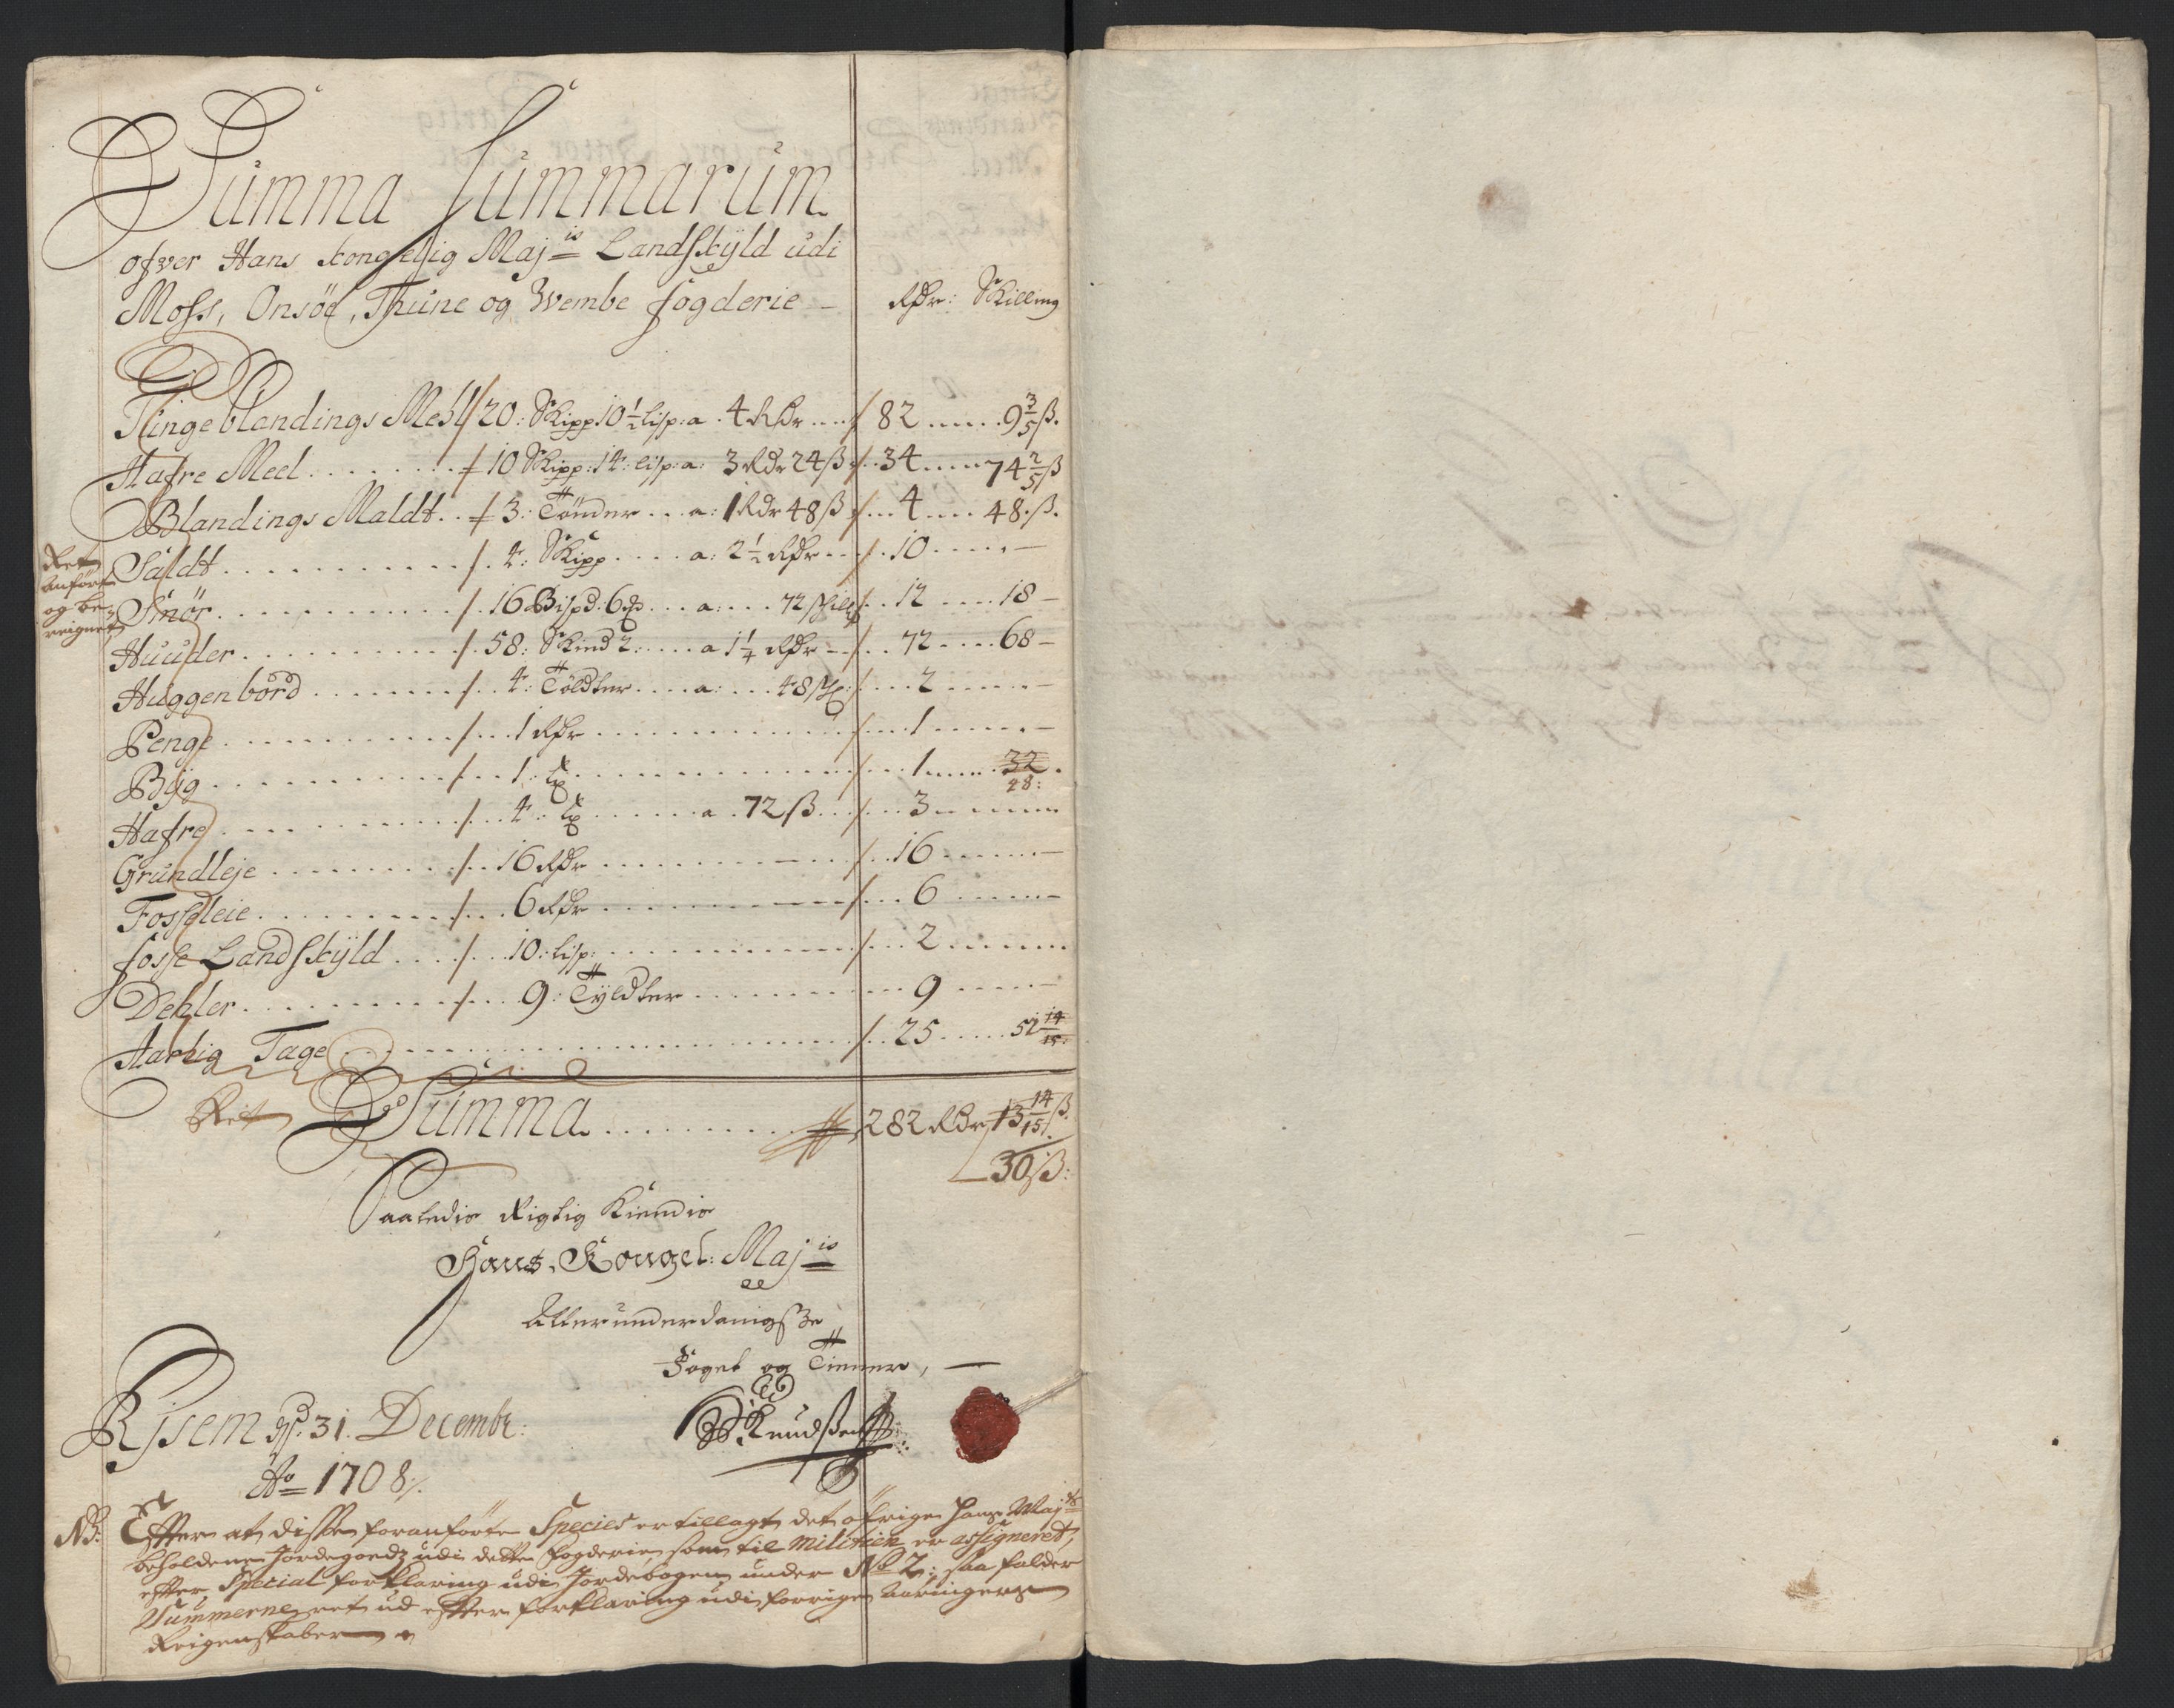 Summa Summarum
ofver Hans Kongelig Maj:is Landskÿld udi
Moss, Onsöe, Thune og Wembe fögderie — Rdr: Skilling
Tiinge blandings Meel / 20: Skipp 10½ lisp: a 4 Rdr / 82 9 3/5 ß.
Hafre Meel / 10 Skipp: 14: lisp: a: 3 Rdr 24 ß / 34 74 2/5 ß
Blandings Maldt / 3: Tönder a: 1 Rdr 48 ß / 4 48 ß.
Saldt / 4: Skipp a: 2½ Rdr / 10 —
Smör / 16 Bispd: 6 a: 72 / 12 18 —
Huuder / 58: Skind 2: a 1¼ Rdr / 72 68 —
Huggenbord / 4: Töldter a: 48 / 2 —
Penge / 1 Rdr / 1 —
Bÿg / 1: / 1 32
48:
Hafre / 4: a 72 ß / 3
Grundleje / 16 Rdr / 16 —
Fosseleie / 6 Rdr / 6 —
fosse Landskÿld / 10: lisp: / 2
Dehler / 9: Tÿldter 9 —
Aarlig Tage / 25 51 14/15
Ret anfört og bereignet
Ret Summa 282 Rdr 13 14/15 ß.
30 ß:
Saaledis Rigtig Kiendis
Hans Kongel: Maj:is
Allerunderdanigste
Foget og Tienner,
Rjsem d: 31. Decembr: Knudßen
Ao 1708
NB: Efter at disse foranförte Species er tillagt det öfrige hans Maj:ts
beholdene Jordegoedz udi dette fogderie, som til militien er assigneret,
efter Special forklaring udi Jordebogen under No 2: saa falder
Summerne ret ud efter forklaring udi forrige aaringers
Reigenskaber